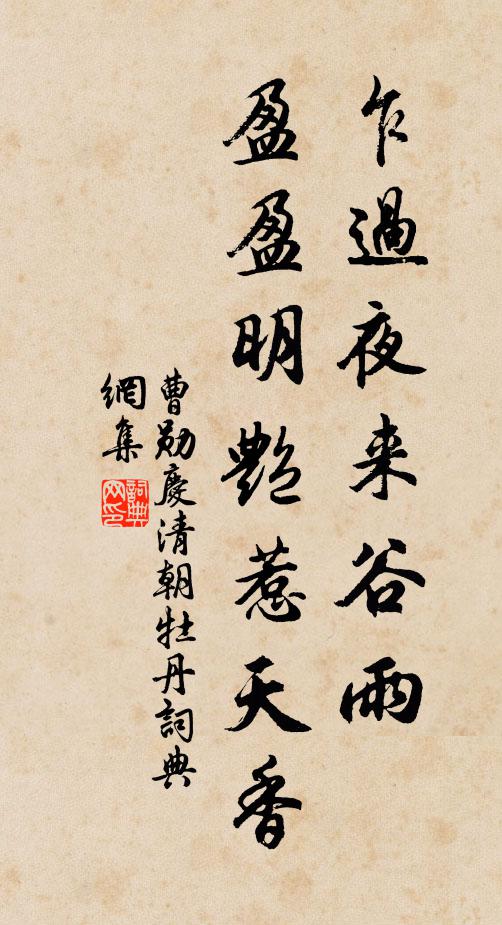 乍過夜来谷雨
盈盈明艷惹天香
曹勛慶清朝牡丹詞典
網集
詞典
网印